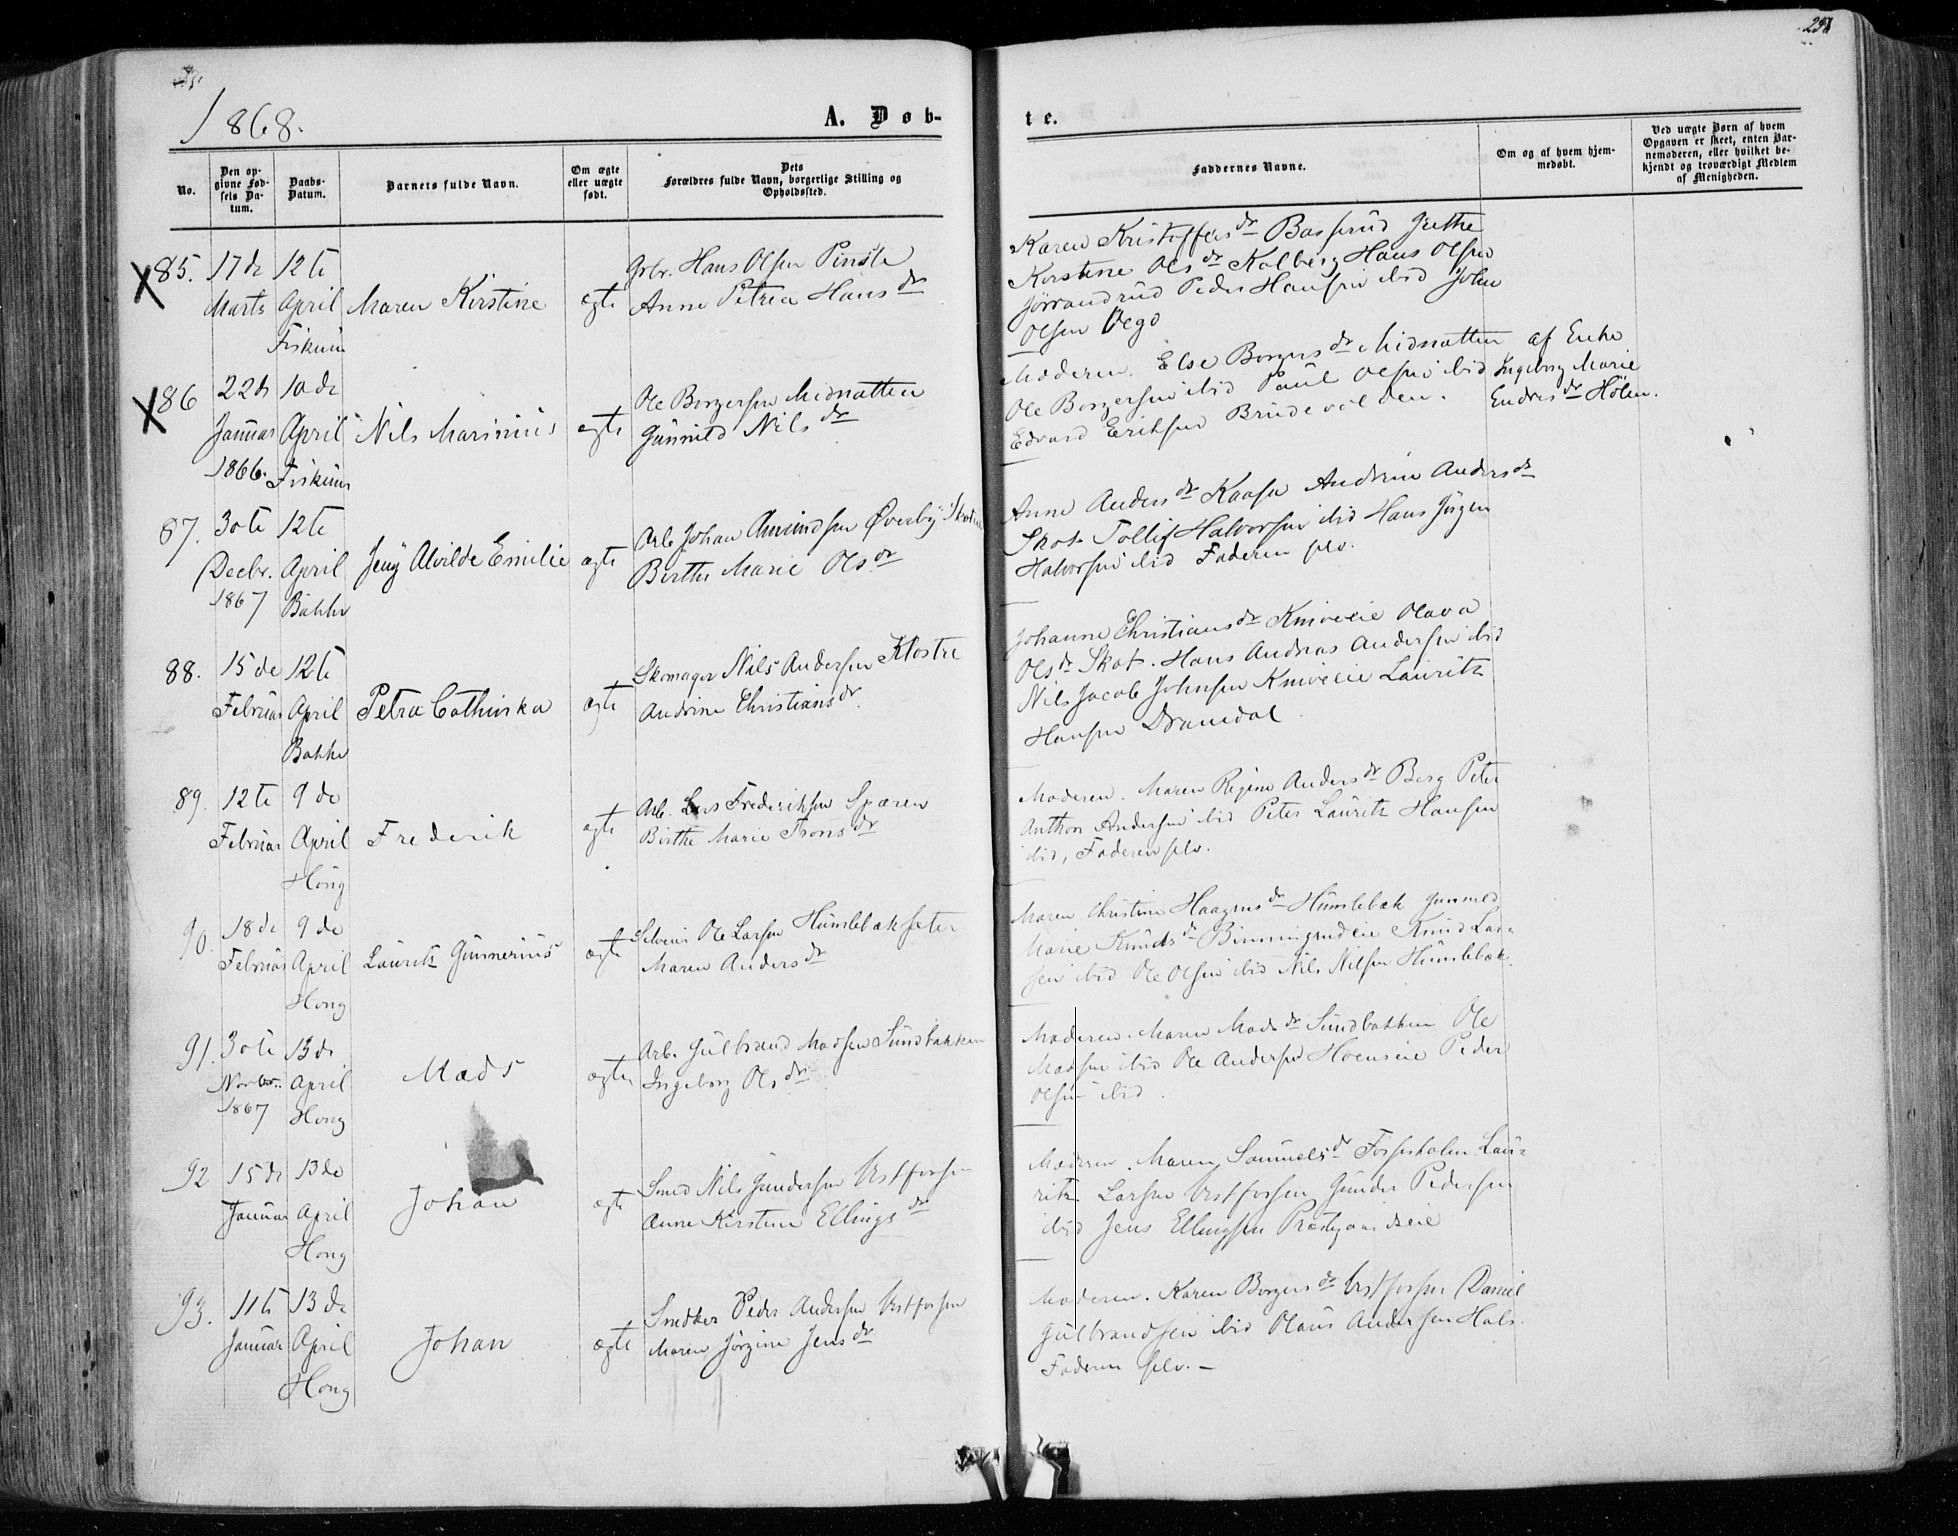 251
1868.
A. Døb-
te.
No.
Den op-
givne Fød-
sels Da-
tum.
Daabs-
Datum.
Barnets fulde Navn.
Om ægte
eller uægte
født.
Dets
Forældres fulde Navn, borgerlige Stilling og
Opholdssted.
Faddernes Navne.
Om og af hvem hjem-
medøbt.
Ved uægte Børn af hvem
Opgaven er skeet, enten Bar-
nemoderen, eller hvilket be-
kjendt og troværdigt Medlem
af Menigheden.
X 85. 17de Marts
12te April Fiskum
Maren Kirstine
ægte
Grbr. Hans Olsen Pinsle
Anne Petrea Hansdr
Karen Kristoffersdr Basserud Grethe
Kirstine Olsdr Kolberg Hans Olsen
Jørrandrud Peder Hansen ibid John
Olsen Vego
X 86 22de Januar 1866.
10de April Fiskum
Nils Marinius
ægte
Ole Borgersen Midnatten
Gunnild Nilsdr
Moderen. Else Borgersdr Midnatten
Ole Borgersen ibid Paul Olsen ibid
Edvard Eriksen Brudevolden.
af Enke
Ingeborg Marie
Endresdr Holen.
87. 30te Decbr. 1867
12te April Bakke
Jeny Alvilde Emilie
ægte
Arb. Johan Amundsen Øverby Skotselv
Berthe Marie Olsdr
Anne Andersdr Kaasa Andrine Andersdr
Skot. Tollif Halvorsen ibid Hans Jørgen
Halvorsen ibid Faderen selv.
88. 15de Februar
12te April Bakke
Petra Cathinka
ægte
Skomager Nils Andersen Klostre
Andrine Christiansdr.
Johanne Christiansdr Kniveeie Olava
Olsdr Skot. Hans Andreas Andersen ibid
Nils Jacob Johnsen Kniveeie Lauritz
Hansen Dramdal
89. 12te Februar
9de April Hong
Frederik
ægte
Arb. Lars Frederiksen Spæren
Berthe Marie Tronsdr
Moderen. Maren Regine Andersdr Berg Peter
Anthon Andersen ibid Peter Lauritz Hansen
ibid, Faderen selv.
90. 18de Februar
9de April Hong
Lauritz Gunnerius
ægte
Selveier Ole Larsen Humlebækseter
Maren Andersdr
Maren Christine Haagensdr Humlebæk Gunnild
Marie Knudsdr Binningrudeie Knud Lar-
sen ibid Ole Olsen ibid Nils Nilsen Humlebæk.
91. 30te Novbr. 1867
13de April Hong
Mads
ægte
Arb. Gulbrand Madsen Sundbakken
Ingeborg Olsdr
Moderen. Maren Madsdr Sundbakken Ole
Madsen ibid Ole Andersen Hoenseie Peder
Olsen ibid.
92 15de Januar
13de April Hong
Johan
ægte
Smed Nils Gundersen Vestfossen
Anne Kirstine Ellingsdr
Moderen. Maren Samuelsdr Fossesholm Lau-
ritz Larsen Vestfossen Gunder Pedersen
ibid Jens Ellingsen Præstgaardseie
93. 11te Januar
13de April Hong
Johan
ægte
Peder Andersen Vestfossen
Maren Jørgine Jensdr
Moderen. Karen Borgersdr Vestfossen Daniel
Gulbrandsen ibid Olaus Andersen Hals.
Faderen selv. –